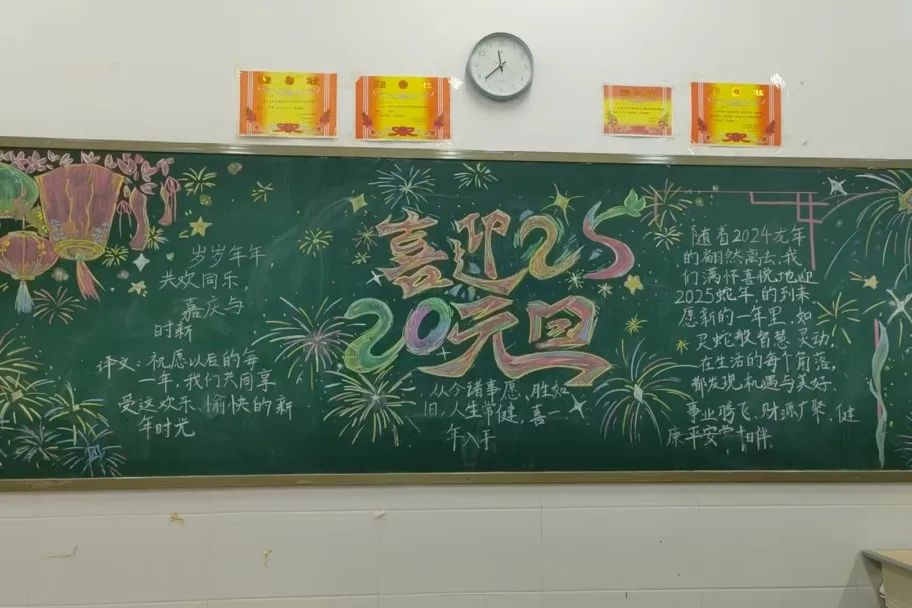 岁岁年年
共欢同乐,
嘉庆与
时新
译文:祝愿以后的每
一年,我们共同享
受这欢乐、愉快的新
年时光
喜迎25
20元旦
从今诸事愿、胜如
旧,人生常健,喜一
年入手
随着2024龙年
的翩然离去,我
们满怀喜悦地迎
2025蛇年,的到来
愿新的一年里,如
灵蛇般智慧灵动,
在生活的每个角落,
都发现机遇与美好
事业腾飞、财源广聚,健
康平安常相伴,